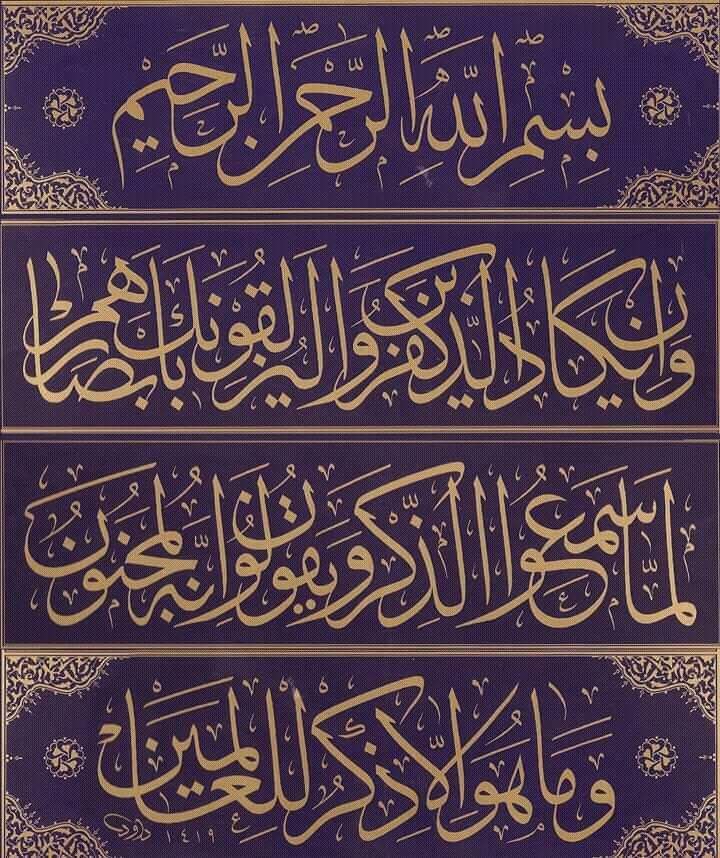 بِسْمِ اللهِ الرَّحْمٰنِ الرَّحِيمِ
وَإِنْ يَكَادُ الَّذِينَ كَفَرُوا لَيُزْلِقُونَكَ بِأَبْصَارِهِمْ
لَمَّا سَمِعُوا الذِّكْرَ وَيَقُولُونَ إِنَّهُ لَمَجْنُونٌ
وَمَا هُوَ إِلَّا ذِكْرٌ لِلْعَالَمِينَ
داود ١٤١٩